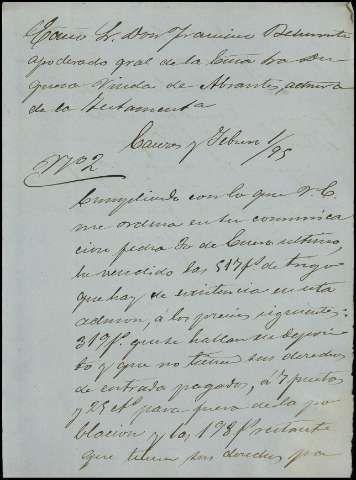 Excmo Sr. Don Francisco Belmonte
apoderado gral de la Excma Sra Du
quesa Viuda de Abrantes, admra
de la testamenta
Caceres y Febrero 1/95
Nº 2
Cumpliendo con lo que V. E.
me ordena en su comunica
cion fecha 30 de Enero ultimo,
he vendido las 517 fs de trigo
que hay de existencia en esta
admon, á los precios siguientes:
319 fs que se hallan en deposi
to y que no tienen sus derechos
de entrada pagados, á 7 pesetas
y 25 cts para fuera de la po
blacion y las 198 fs restantes
que tienen sus derechos pa